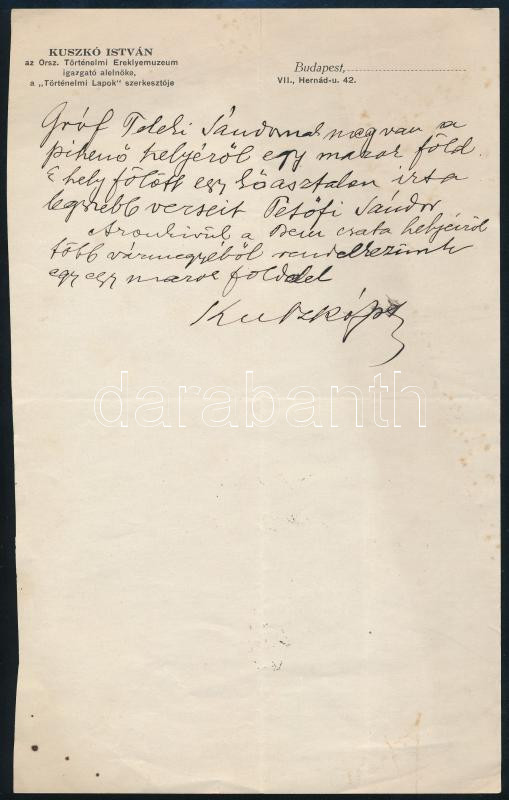 KUSZKÓ ISTVÁN
az Orsz. Történelmi Ereklyemuzeum
igazgató alelnöke,
a „Történelmi Lapok" szerkesztője
Budapest,
VII., Hernád-u. 42.
Gróf Teleki Sándornak megvan a
pihenő helyéről egy marok föld.
E hely fölött egy kőasztalon irta
legszebb verseit Petőfi Sándor
Azonkivül a Bem csata helyeiről
több vármegyéből rendelkezünk
egy egy marok földdel
Kuszkó Ist
darabanth